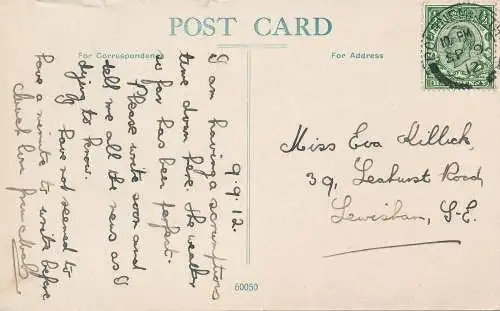 POST CARD
For Correspondence
For Address
9.9.12.
I am having a scrumptious
time down here. The weather
so far has been perfect.
Please write soon and
tell me all the news as I
dying to know.
I have not seemed to
have a minute to write before
Much love from
Miss Eva Killick,
39, Leahurst Road,
Lewisham, S.E.
60050
10 PM
SP 9
12